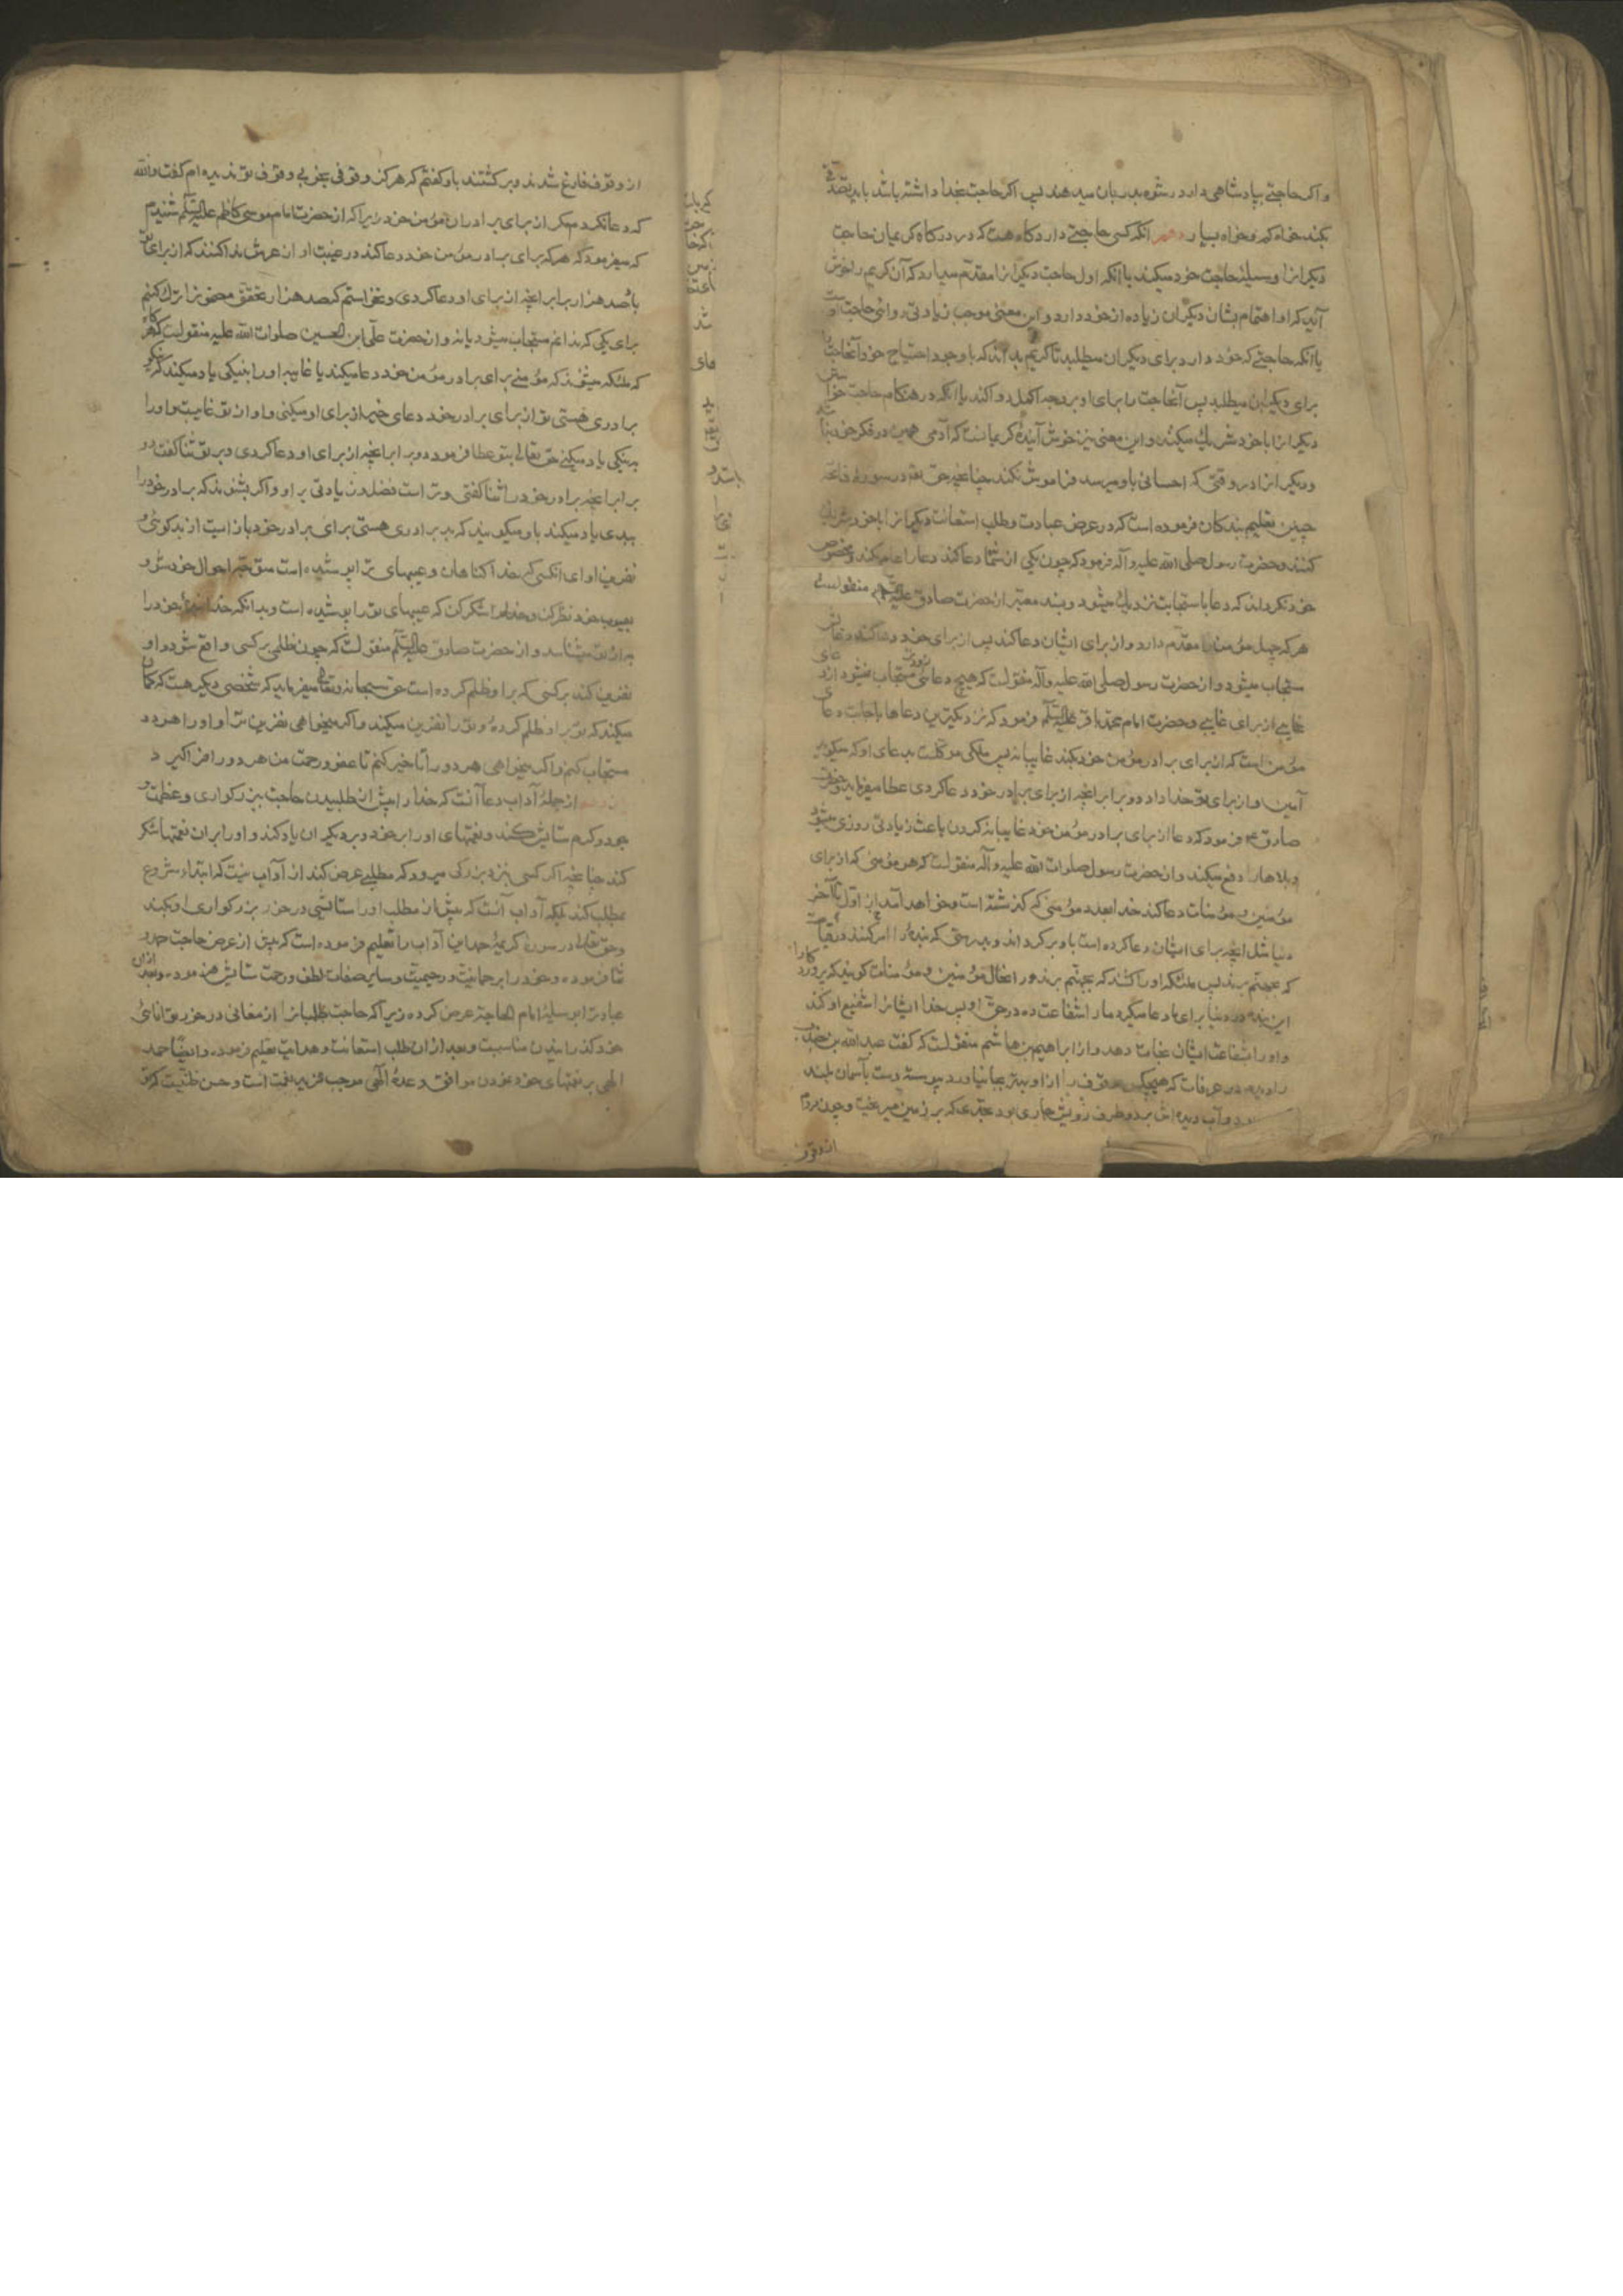 واکر حاجتی بپادشاهی دارد رشوه بدربان میدهند پس اکر حاجت بخدا داشته باشد باید تصدقی
بکند خواه کم و خواه بسیار دهم آنکه کسی حاجتی دارد کاه هست که در درکاه کریمان حاجت
دیکرانرا وسیلهٔ حاجت خود میکند یا آنکه اول حاجت دیکرانرا مقدم میدارد که آن کریم را خوش
آید که او اهتمام بشان دیکران زیاده از خود دارد و این معنی موجب زیادتی روائی حاجت
یا آنکه حاجتی که خود دارد برای دیکران میطلبد تا کریم بداند که با وجود احتیاج خود آنحاجت را
برای دیکران میطلبد پس آنحاجت را برای او بر وجه اکمل روا کند یا آنکه در هنکام حاجت خود
دیکرانرا با خود شریک میکند و این معنی نیز خوش آیندهٔ کریمانست که آدمی همین در فکر خود نباشد
و دیکرانرا در وقتی که احسانی باو میرسد فراموش نکند چنانچه حق تعه در سورهٔ فاتحه
چنین تعلیم بندکان فرموده است که در عرض عبادت و طلب استعانت دیکرانرا با خود شریک
کنند و حضرت رسول صلی الله علیه و آله فرمود که چون یکی از شما دعا کند دعا را عام بکند و مخصوص
خود نکرداند که دعا باستجابت نزدیک میشود و بسند معتبر از حضرت صادق علیه السلم منقولست
هر که چهل مؤمن را مقدم دارد و از برای ایشان دعا کند پس از برای خود دعا کند دعاش
مستجاب میشود و از حضرت رسول صلی الله علیه وآله منقولست که هیچ دعائی زودتر مستجاب نمیشود از دعای
غایبی از برای غایبی و حضرت امام محمد باقر علیه السلم فرمود که نزدیکترین دعاها باجابت دعای
مؤمن است که از برای برادر مؤمن خود بکند غایبانه پس ملکی موکلست بدعای او که میکوید
آمین و از برای تو خدا داد دو برابر آنچه از برای برادر خود دعا کردی عطا میفرماید و حضرت
صادق ع فرمود که دعا از برای برادر مؤمن خود غایبانه کردن باعث زیادتی روزی میشود
و بلاها را دفع میکند و از حضرت رسول صلوات الله علیه وآله منقولست که هر مؤمنی که از برای
مؤمنین و مؤمنات دعا کند خدا بعدد مؤمنی که کذشته است و خواهد آمد از اول تا آخر
دنیا مثل آنچه برای ایشان دعا کرده است باو بر کرداند و بدرستی که بنده را امر کنند در قیامت
که بجهنم برند پس ملئکه او را کشند که بجهنم برند در آنحال مؤمنین و مؤمنات کویند که پروردکارا
این بنده در دنیا برای ما دعا میکرد ما را شفاعت ده در حق او پس خدا ایشانرا شفیع او کند
و او را بشفاعت ایشان نجات دهد و از ابراهیم بن هاشم منقولست که کفت عبد الله بن جندب
را دیدم در عرفات که هیچکس موقف را از او بهتر بجا نیاورد پیوسته دست بآسمان بلند
و آب دیده اش بر دو طرف رویش جاری بود بحدی که بر زمین میریخت و چون مردم
از وقوف
از وقوف فارغ شدند و بر کشتند باو کفتم که هرکز وقوفی بخوبی وقوف تو ندیده ام کفت والله
که دعا نکردم مکر از برای برادران مؤمن خود زیرا که از حضرت امام موسی کاظم علیه السلم شنیدم
که میفرمود که هر که برای برادر مؤمن خود دعا کند در غیبت او از عرش ندا کنند که از برای تو
باد صد هزار برابر آنچه از برای او دعا کردی و نخواستم که صد هزار محقق مضمونرا ترک کنم
برای یکی که ندانم مستجاب میشود یا نه و از حضرت علی ابن الحسین صلوات الله علیه منقولست که هرکاه
که ملئکه میشنوند که مؤمنی برای برادر مؤمن خود دعا میکند یا غایبه او را بنیکی یاد میکند کویند نیکو
برادری هستی تو از برای برادر خود دعای خیر از برای او میکنی و او از تو غایبست و او را
بنیکی یاد میکنی حق تعالی بتو عطا فرمود دو برابر آنچه از برای او دعا کردی و بر تو ثنا کفت دو
برابر آنچه برادر خود را ثنا کفتی و تراست فضل و زیادتی بر او و اکر بشنوند که برادر خود را
ببدی یاد میکند باو میکویند که بد برادری هستی برای برادر خود باز ایست از بدکوئی و
نفرین او ای آنکسی که خدا کناهان و عیبهای ترا پوشیده است متوجه احوال خود شو و
بعیوب خود نظر کن و خدا را شکر کن که عیبهای تو را پوشیده است و بدانکه خدا بندهٔ خود را
به از تو میشناسد و از حضرت صادق علیه السلم منقولست که چون ظلمی بر کسی واقع شود و او
نفرین کند بر کسی که بر او ظلم کرده است حق سبحانه وتعالی میفرماید که شخصی دیکر هست که کمان
میکند که تو بر او ظلم کردهٔ و تو را نفرین میکند و اکر میخواهی نفرین ترا و او را هر دو
مستجاب کنم و اکر میخواهی هر دو را تاخیر کنم تا عفو و رحمت من هر دو را فرا کیرد
از جملهٔ آداب دعا آنست که خدا را پیش از طلبیدن حاجت ببزرکواری و عظمت و
جود و کرم ستایش کند و نعمتهای او را بر خود و بر دیکران یاد کند و او را بر آن نعمتها شکر
کند چنانچه اکر کسی بنزد بزرکی میرود که مطلبی عرض کند از آداب نیست که ابتداء شروع
بمطلب کند بلکه آداب آنست که پیش از مطلب او را ستایشی در خور بزرکواری او بکند
و حق تعالی در سورهٔ کریمهٔ حمد این آداب را تعلیم فرموده است که پیش از عرض حاجت حمد و
ثنا فرموده و خود را برحمانیت و رحیمیت و سایر صفات لطف و رحمت ستایش فرموده و بعد از آن
عبادت را وسیلهٔ امام الحاجة عرض کرده زیرا که حاجت طلبانرا ارمغانی در خور توانائی
خود کذرانیدن مناسبست و بعد از آن طلب استعانت و هدایت تعلیم فرموده و ایضا حمد
الهی بر نعمتهای خود نمودن موافق وعدهٔ الهی موجب مزید نعمت است و حسن طلبیست که